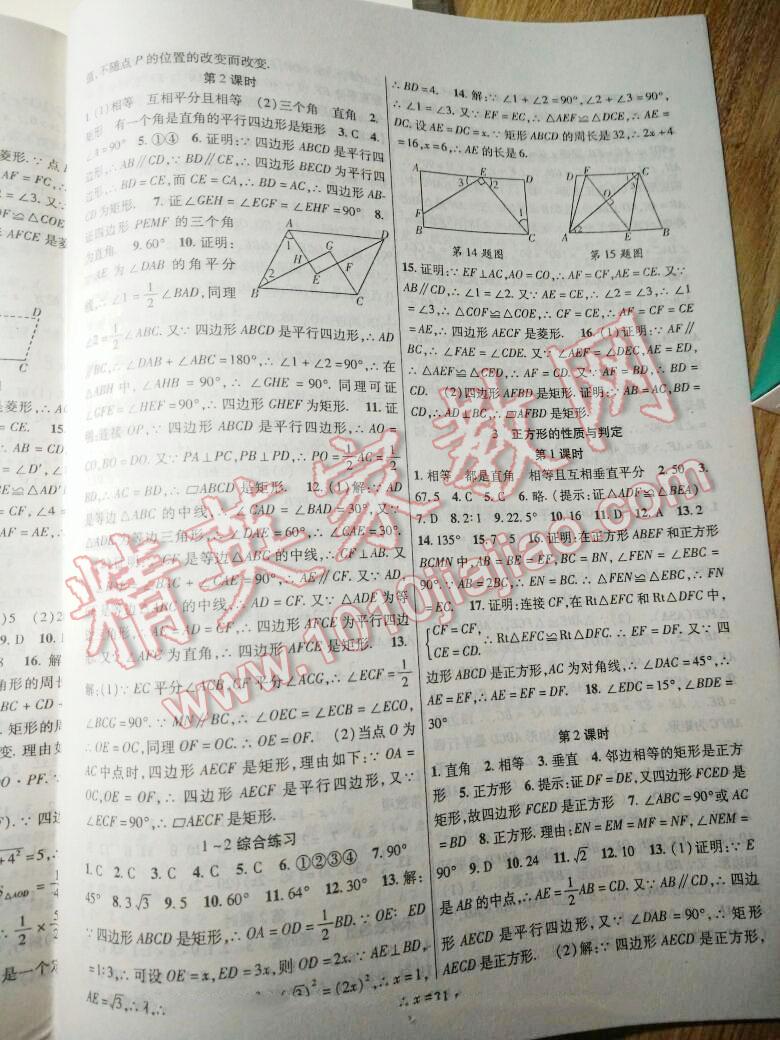 值,不随点 P 的位置的改变而改变.
第 2 课时
1.(1)相等 互相平分且相等 (2)三个角 直角 2.
矩形 有一个角是直角的平行四边形是矩形 3.C 4.
∠A=90° 5.①④ 6.证明:∵四边形 ABCD 是平行四
边形,∴AB∥CD,∵BD∥CE,∴四边形 BECD 为平行四
边形,∴BD=CE,而 CE=CA,∴BD=AC,∴四边形 AB-
CD 为矩形. 7.证∠GEH=∠EGF=∠EHF=90° 8.
证四边形 PEMF 的三个角
为直角 9.60° 10.证明:
∵AE 为∠DAB 的角平分
线,∴∠1=1/2∠BAD,同理
A
D
1
G
H
F
E
2
B
C
∠2=1/2∠ABC.又∵四边形 ABCD 是平行四边形,∴AD
∥BC,∴∠DAB+∠ABC=180°,∴∠1+∠2=90°,∴在
△ABH 中,∠AHB=90°,∴∠GHE=90°.同理可证
∠GFE=∠HEF=90°,∴四边形 GHEF 为矩形. 11.证
明:连接 OP,∵四边形 ABCD 是平行四边形,∴AO=
CO,BO=DO.又∵PA⊥PC,PB⊥PD,∴PO=1/2AC=1/2
BD,∴AC=BD,∴▱ABCD 是矩形. 12.(1)解:∵AD
是等边△ABC 的中线,∴∠CAD=∠BAD=30°,又∵
△ADE 为等边三角形,∴∠DAE=60°,∴∠CAE=30°.
(2)证明:∵CF 是等边△ABC 的中线,∴CF⊥AB.又
∵∠BAC+∠CAE=90°,∴AE∥CF.又∵AD,
CF 为等边△ABC 的中线,∴AD=CF.又∵△ADE 为等
边三角形,∴AE=AD=CF,∴四边形 AFCE 为平行四边
形.又∵∠AFC 为直角,∴四边形 AFCE 是矩形. 13.
解:(1)∵EC 平分∠BCA,CF 平分∠ACG,∴∠ECF=1/2
∠BCG=90°.∵MN∥BC,∴∠OEC=∠ECB=∠ECO,
∴OE=OC,同理 OF=OC.∴OE=OF. (2)当点 O 为
AC 中点时,四边形 AECF 是矩形,理由如下:∵OA=
OC,OE=OF,∴四边形 AECF 是平行四边形,又∵
∠ECF=90°,∴▱AECF 是矩形.
1~2 综合练习
1.C 2.C 3.C 4.C 5.C 6.①②③④ 7.90°
45° 8.3√3 9.5 10.60° 11.64° 12.30° 13.解:
∵四边形 ABCD 是矩形,∴OA=OD=1/2BD.∵OE∶ED
=1∶3,∴可设 OE=x,ED=3x,则 OD=2x.∵AE⊥BD,
AE=√3,∴
∴BD=4. 14.解:∵∠1+∠2=90°,∠2+∠3=90°,
∴∠1=∠3.又∵EF=EC,∴△AEF≌△DCE,∴AE=
DC.设 AE=DC=x.∵矩形 ABCD 的周长是 32,∴2x+4
=16,x=6,∴AE 的长是 6.
A
E
D
3
2
F
1
B
C
第 14 题图
F
D
O
A
2
E
B
第 15 题图
15.证明:∵EF⊥AC,AO=CO,∴AF=CF,AE=CE.又∵
AB∥CD,∴∠1=∠2.又∵AE=CE,∴∠2=∠3,∴∠1
=∠3,∴△COF≌△COE,∴CF=CE,∴AF=CF=CE
=AE,∴四边形 AECF 是菱形. 16.(1)证明:∵AF∥
BC,∴∠FAE=∠CDE.又∵∠AEF=∠DEC,AE=ED,
∴△AEF≌△DEC,∴AF=CD.又∵AF=BD,∴BD=
CD. (2)四边形 AFBD 是矩形.证明:∵AB=AC,BD=
CD,∴AD⊥BC,∴▱AFBD 是矩形.
3 正方形的性质与判定
第 1 课时
1.相等 都是直角 相等且互相垂直平分 2.50 3.
67.5 4.C 5.C 6.略.(提示:证△ADF≌△BEA)
7.D 8.2∶1 9.22.5° 10.16 11.D 12.A 13.2
14.135° 15.7 5 16.证明:在正方形 ABEF 和正方形
BCMN 中,AB=BE=EF,BC=BN,∠FEN=∠EBC=
90°.∵AB=2BC,∴EN=BC.∴△FEN≌△EBC,∴FN
=EC. 17.证明:连接 CF,在 Rt△EFC 和 Rt△DFC 中,
{CF=CF,
CE=CD. ∴Rt△EFC≌Rt△DFC.∴EF=DF.又∵四
边形 ABCD 是正方形,AC 为对角线,∴∠DAC=45°,∴
AE=EF,∴AE=EF=DF. 18.∠EDC=15°,∠BDE=
30°
第 2 课时
1.直角 2.相等 3.垂直 4.邻边相等的矩形是正方
形 5.正方形 6.提示:证 DF=DE,又四边形 FCED 是
矩形,故四边形 FCED 是正方形 7.∠ABC=90°或 AC
=BD 8.正方形.理由:EN=EM=MF=NF,∠NEM=
90° 9.D 10.24 11.√2 12.10 13.(1)证明:∵E
是 AB 的中点,∴AE=1/2AB=CD.又∵AB∥CD,∴四边
形 AECD 是平行四边形,又∵∠DAB=90°,∴矩形
AECD 是正方形. (2)解:∵四边形 AECD 是正方形,
精英家教网
www.1010jiajiao.com